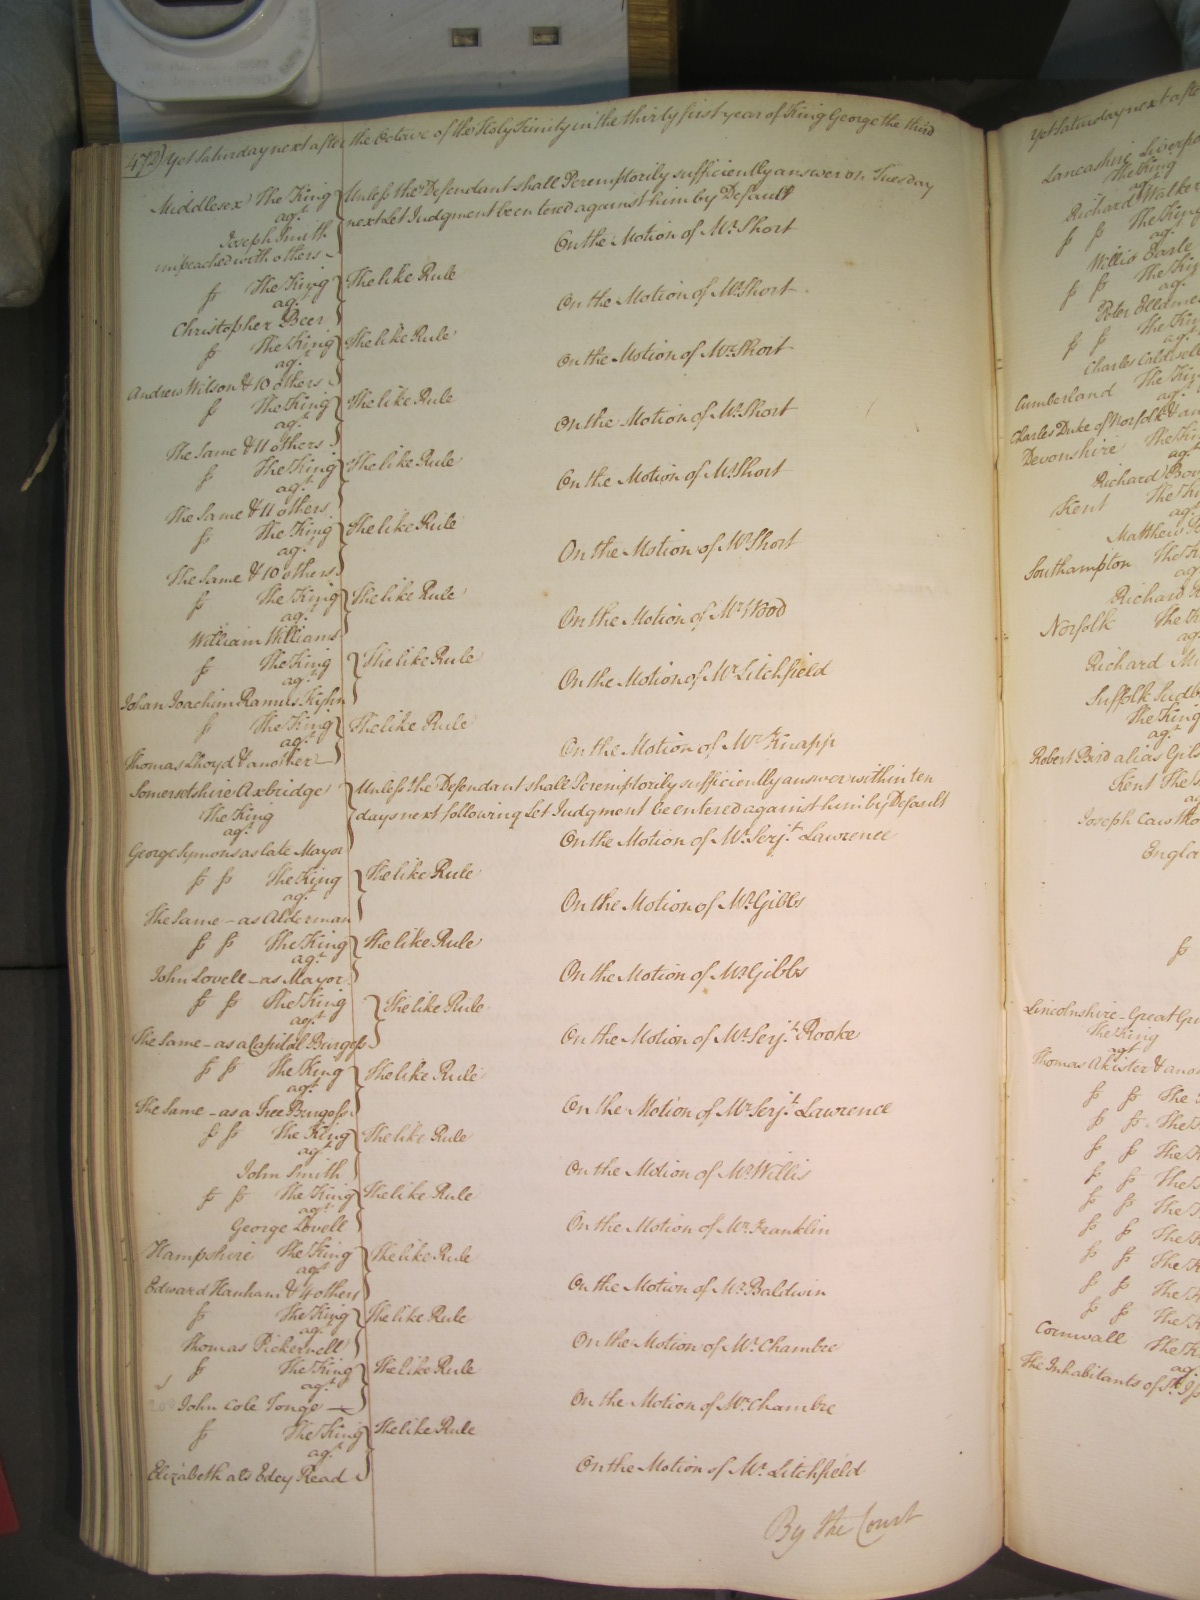 472) Yet Saturday next after the Octave of the Holy Trinity in the thirty first year of King George the third
Middlesex The King
agt
Joseph Smith
impeached with others
Unless the Defendant shall Peremptorily sufficiently answer on Tuesday
next Let Judgment be entered against him by Default
On the Motion of Mr Short
The King
agt
Christopher Beer
The like Rule
On the Motion of Mr Short
The King
agt
Andrew Wilson & 10 others
The like Rule
On the Motion of Mr Short
The King
agt
The Same & 11 others
The like Rule
On the Motion of Mr Short
The King
agt
The Same & 11 others
The like Rule
On the Motion of Mr Short
The King
agt
The Same & 10 others
The like Rule
On the Motion of Mr Short
The King
agt
William Williams
The like Rule
On the Motion of Mr Wood
The King
agt
Johan Joachim Ramus
The like Rule
On the Motion of Mr Litchfield
The King
agt
Thomas Lhoyd & another
The like Rule
On the Motion of Mr Knapp
Somersetshire Axbridge
The King
agt
George Symons as late Mayor
Unless the Defendant shall Peremptorily sufficiently answer within ten
days next following Let Judgment be entered against him by Default
On the Motion of Mr Serjt Lawrence
The King
agt
The Same - as Alderman
The like Rule
On the Motion of Mr Gibbs
The King
agt
John Lovell - as Mayor
The like Rule
On the Motion of Mr Gibbs
The King
agt
The Same - as a Capital Burgess
The like Rule
On the Motion of Mr Serjt Rooke
The King
agt
The Same - as a Free Burgess
The like Rule
On the Motion of Mr Serjt Lawrence
The King
agt
John Smith
The like Rule
On the Motion of Mr Willis
The King
agt
George Lovell
The like Rule
On the Motion of Mr Franklin
Hampshire The King
agt
Edward Hanham & 4 others
The like Rule
On the Motion of Mr Baldwin
The King
agt
Thomas Pickernell
The like Rule
On the Motion of Mr Chambre
The King
agt
John Cole Tonge
The like Rule
On the Motion of Mr Chambre
The King
agt
Elizabeth als Edey Read
The like Rule
On the Motion of Mr Litchfield
By the Court
Yet Saturday next
Lancashire
The King
agt
Richard Walker
The King
agt
Willis Earle
agt
Peter
agt
Charles
Cumberland The
agt
Charles Duke of Norfolk &
Devonshire
agt
Richard
Kent
agt
Matthew
Southampton
Richard
Norfolk
Richard
Suffolk
The King
agt
Robert Bird alias
Kent The
Joseph
Lincolnshire - Great
The King
agt
Thomas
The
Cornwall
agt
The Inhabitants of St